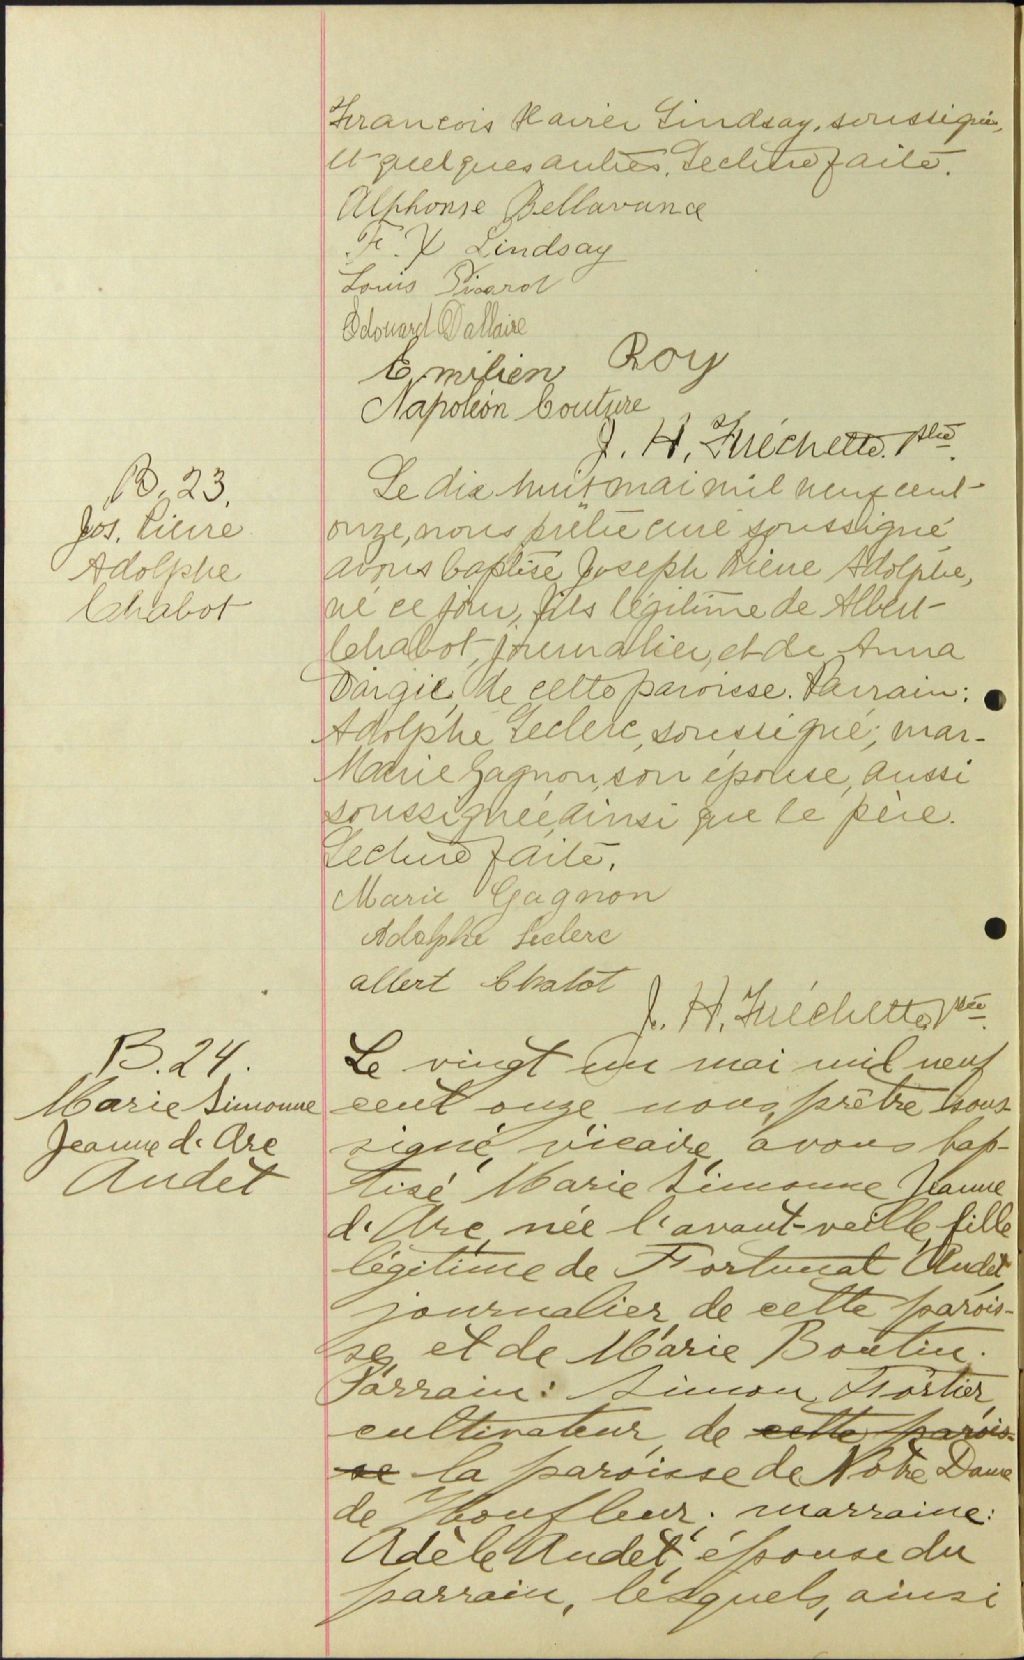 François Xavier Lindsay, soussigné,
et quelques autres. Lecture faite.
Alphonse Bellavance
F. X Lindsay
Louis Picard
Edouard Dallaire
Emilien Roy
Napoléon Couture
J. H. Fréchette. Ptre.
B. 23.
Jos. Pierre
Adolphe
Chabot
Le dix huit mai mil neuf cent
onze, nous prêtre curé soussigné
avons baptisé Joseph Pierre Adolphe,
né ce jour, fils légitime de Albert
Chabot, journalier, et de Anna
Dargie, de cette paroisse. Parrain:
Adolphe Leclerc, soussigné; mar-
Marie Gagnon, son épouse, aussi
soussignée, ainsi que le père.
Lecture faite.
Marie Gagnon
Adolphe Leclerc
albert Chabot
J. H. Fréchette Ptre.
B. 24.
Marie Simonne
Jeanne d'Arc
Audet
Le vingt un mai mil neuf
cent onze nous, prêtre sous-
signé, vicaire, avons bap-
tisé Marie Simonne Jeanne
d'Arc, née l'avant-veille, fille
légitime de Fortunat Audet,
journalier, de cette parois-
se, et de Marie Boutin.
Parrain: Simon Fortier,
cultivateur, de cette parois-
se la paroisse de Notre Dame
de Honfleur; marraine:
Adèle Audet, épouse du
parrain, lesquels, ainsi